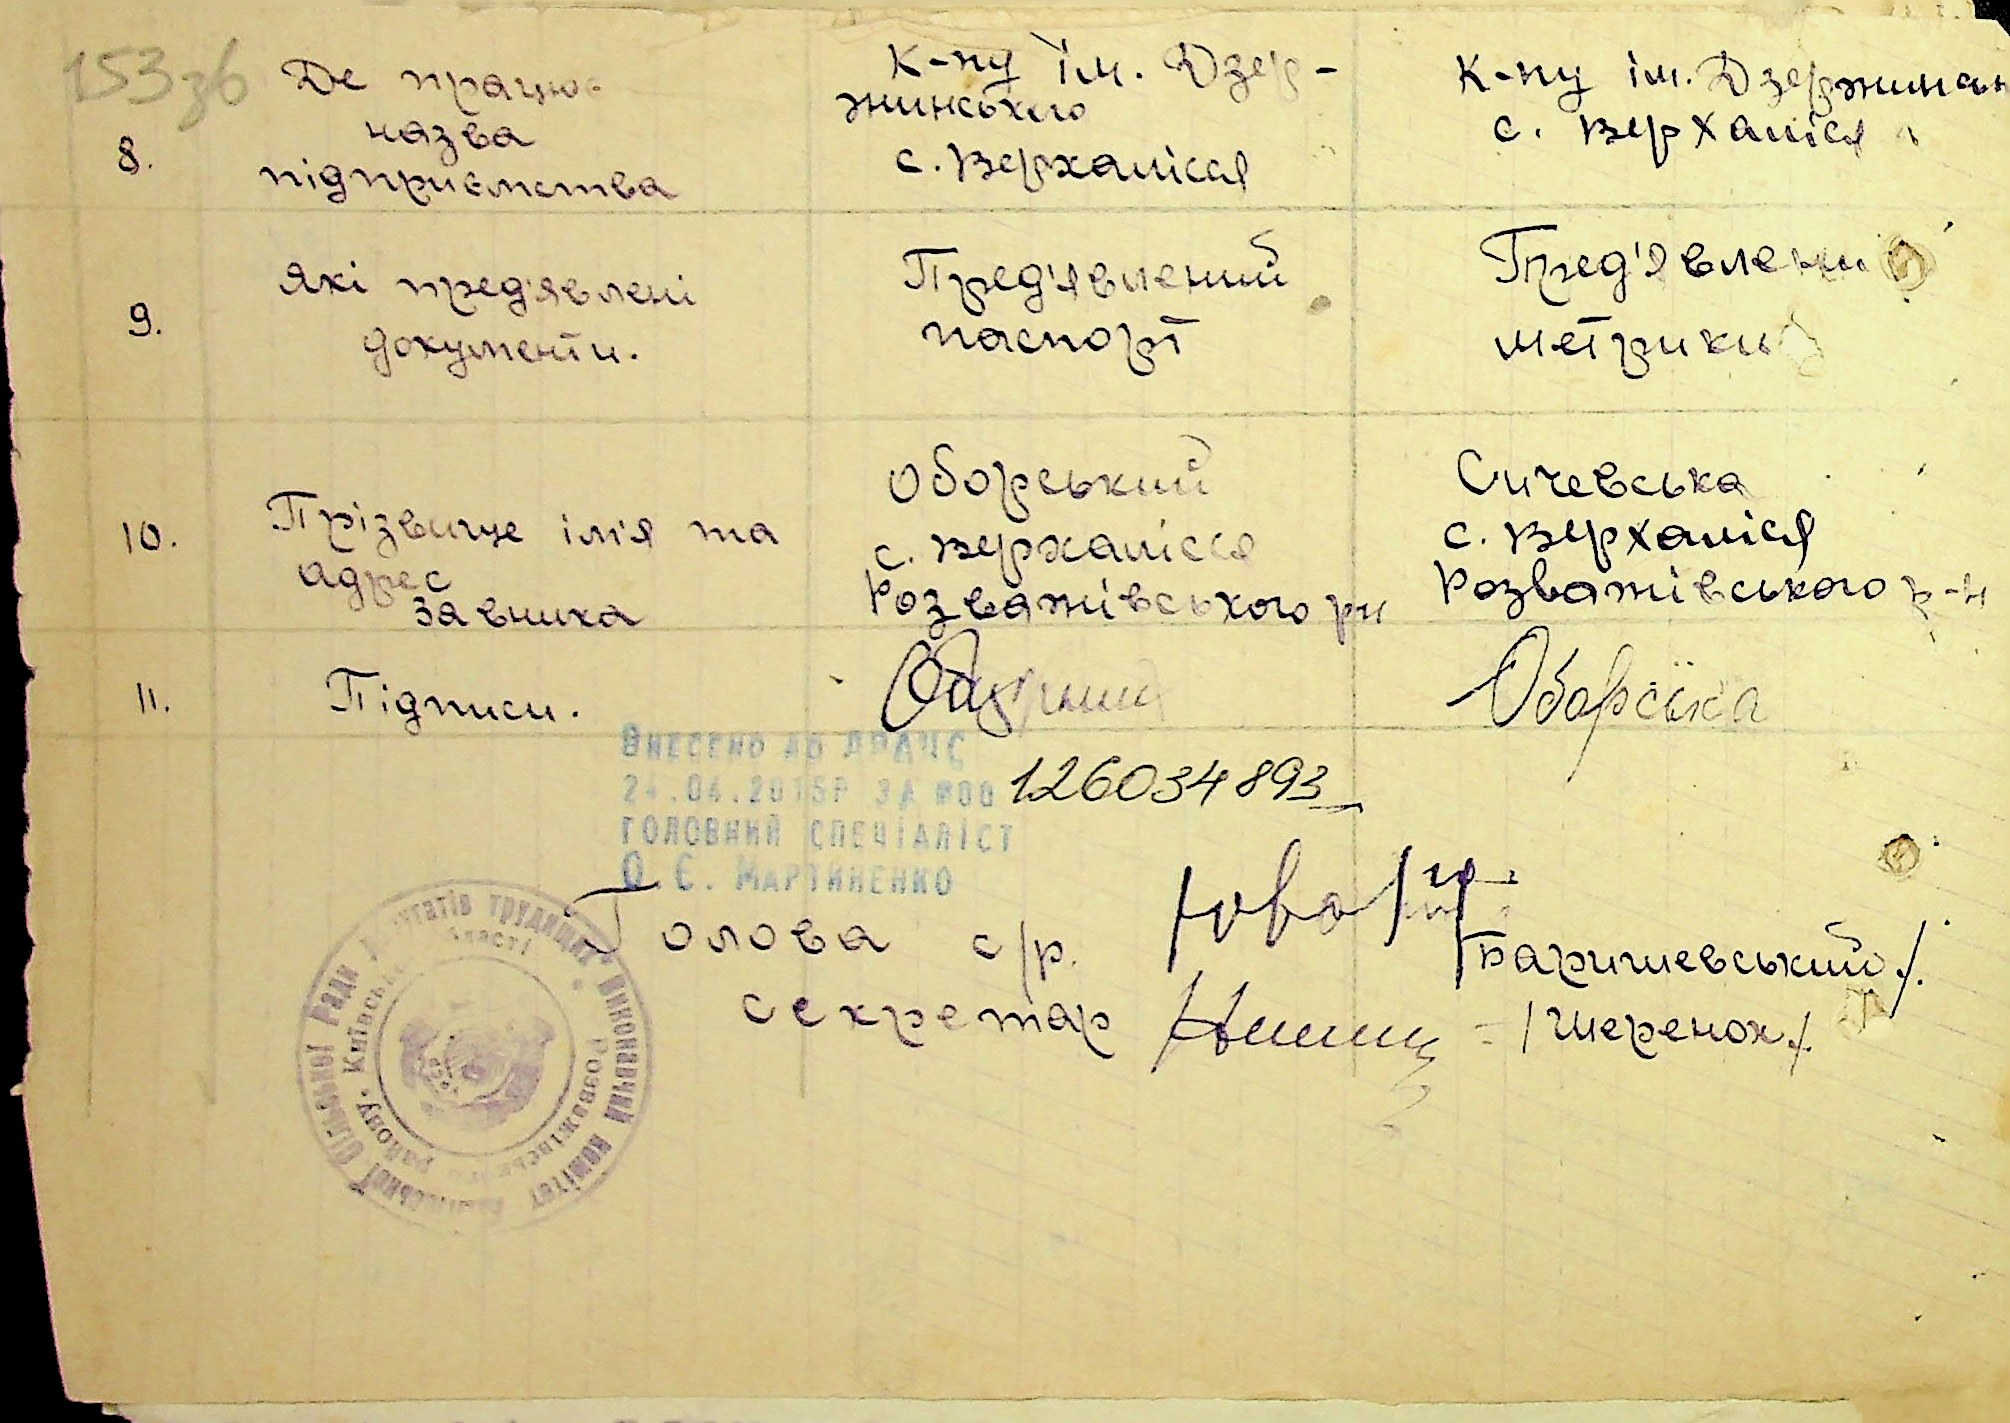 153зв
8.
Де працює
назва
підприємства
К-пу ім. Дзер-
жинського
с. Верхалісся
К-пу ім. Дзержинськ
с. Верхалісся
9.
Які пред'явлені
документи.
Пред'явлений
паспорт
Пред'явлени
метрики
10.
Прізвище ім'я та
адрес
заявника
Оборський
с. Верхалісся
Розважівського рн
Сичевська
с. Верхалісся
Розважівського р-н
11.
Підписи.
Оборська
Внесено до ДРАЦС
24.04.2015р за №00 126034893
Головний спеціаліст
О.Є. Мартиненко
Голова с/р.
/Баришевський/.
секретар
/Шеренок/.
Сільської Ради Депутатів трудящих Виконавчий комітет
Розважівського району, Київської області